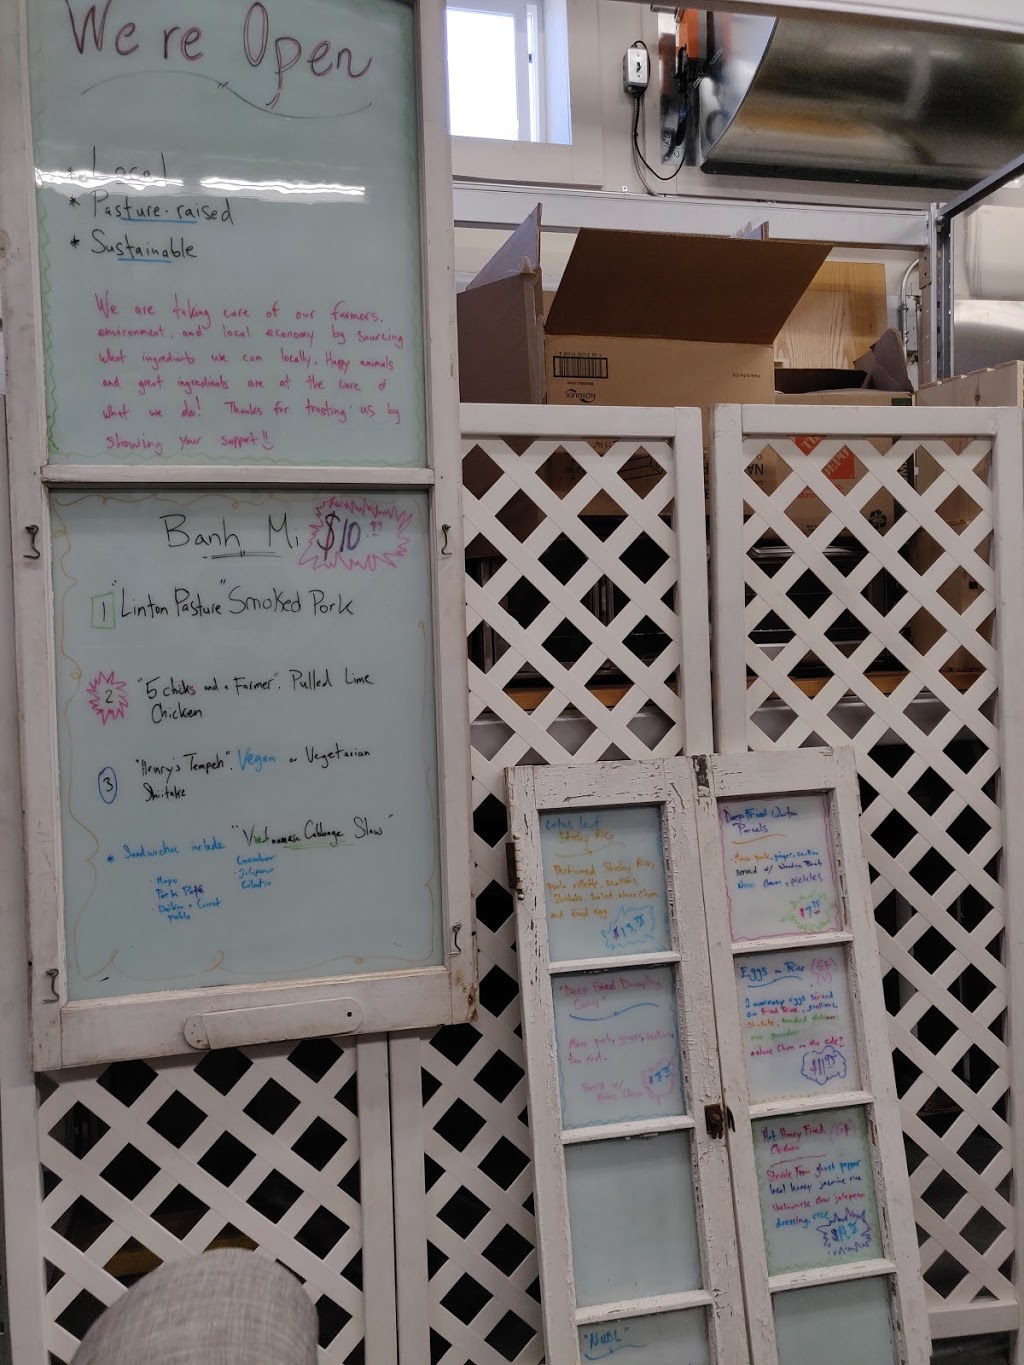 We're Open
* Local
* Pasture-raised
* Sustainable
We are taking care of our farmers,
environment, and local economy by sourcing
what ingredients we can locally. Happy animals
and great ingredients are at the core of
what we do! Thanks for trusting us by
showing your support!!
Banh Mi $10.99
1 "Linton Pasture" Smoked Pork
2 "5 chiks and a Farmer". Pulled Lime
Chicken
3 "Henry's Tempeh". Vegan or Vegetarian
Shiitake
* Sandwiches include "Vietnamese Cabbage Slaw"
· Mayo
· Pork Pate
· Daikon + Carrot
pickle
Cucumber
· Jalapeno
Cilantro
Lotus Leaf
Sticky Rice
Perfumed Sticky Rice,
pork rillette, scallions,
Shiitake,
and fried egg
$13.95
"Deep Fried Dumpling
Deep Fried Wonton
Parcels
pork, ginger, scallion
served w/
pickles
Eggs on Rice (GF)
eggs served
on Fried Rice, scallions,
Shiitake,
on the side!!
$11.95
Hot Honey Fried (GF)
Chicken
Farm ghost pepper
local honey jasmine rice
Vietnamese slaw jalapeno
dressing, rice
"NuDL"
NOVOLEX